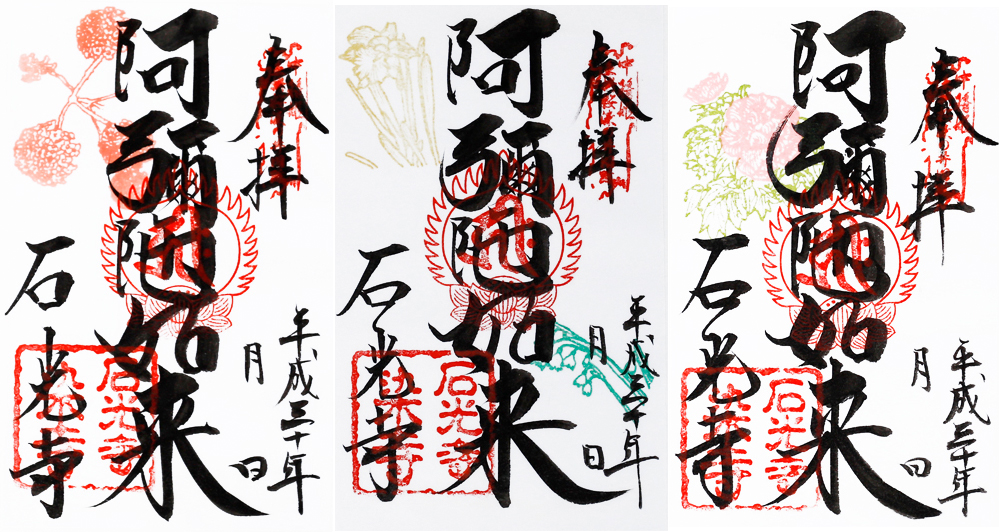 奉拝
阿彌陀如来
平成三十年
月 日
石光寺
石光寺
奉拝
阿彌陀如来
平成三十年
月 日
石光寺
石光寺
奉拝
阿彌陀如来
平成三十年
月 日
石光寺
石光寺